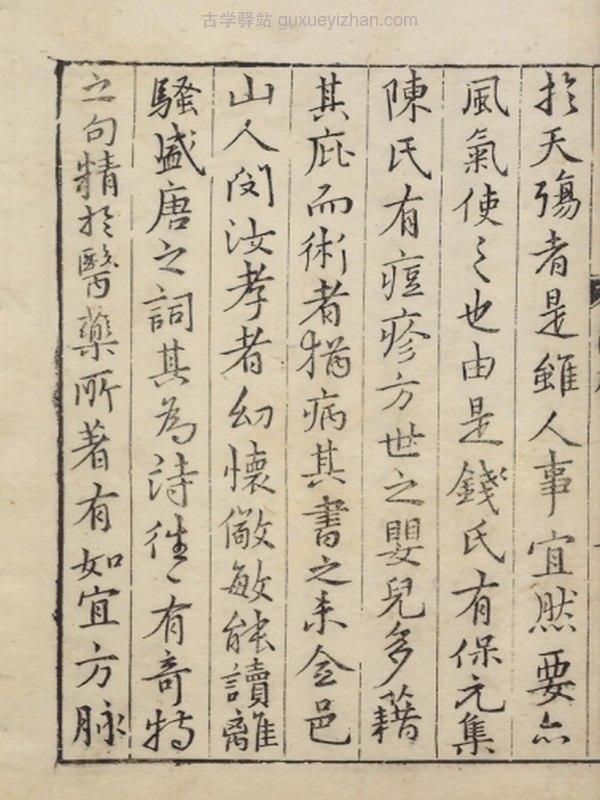 古学驿站 guxueyizhan.com
於夭殤者是雖人事宜然要亦
風氣使之也由是錢氏有保元集
陳氏有痘疹方世之嬰兒多藉
其庇而術者猶病其書之未全邑
山人閔汝孝者幻懷儆敏能讀離
騷盛唐之詞其為詩徃〻有奇特
之句精於醫藥所著有如宜方脉